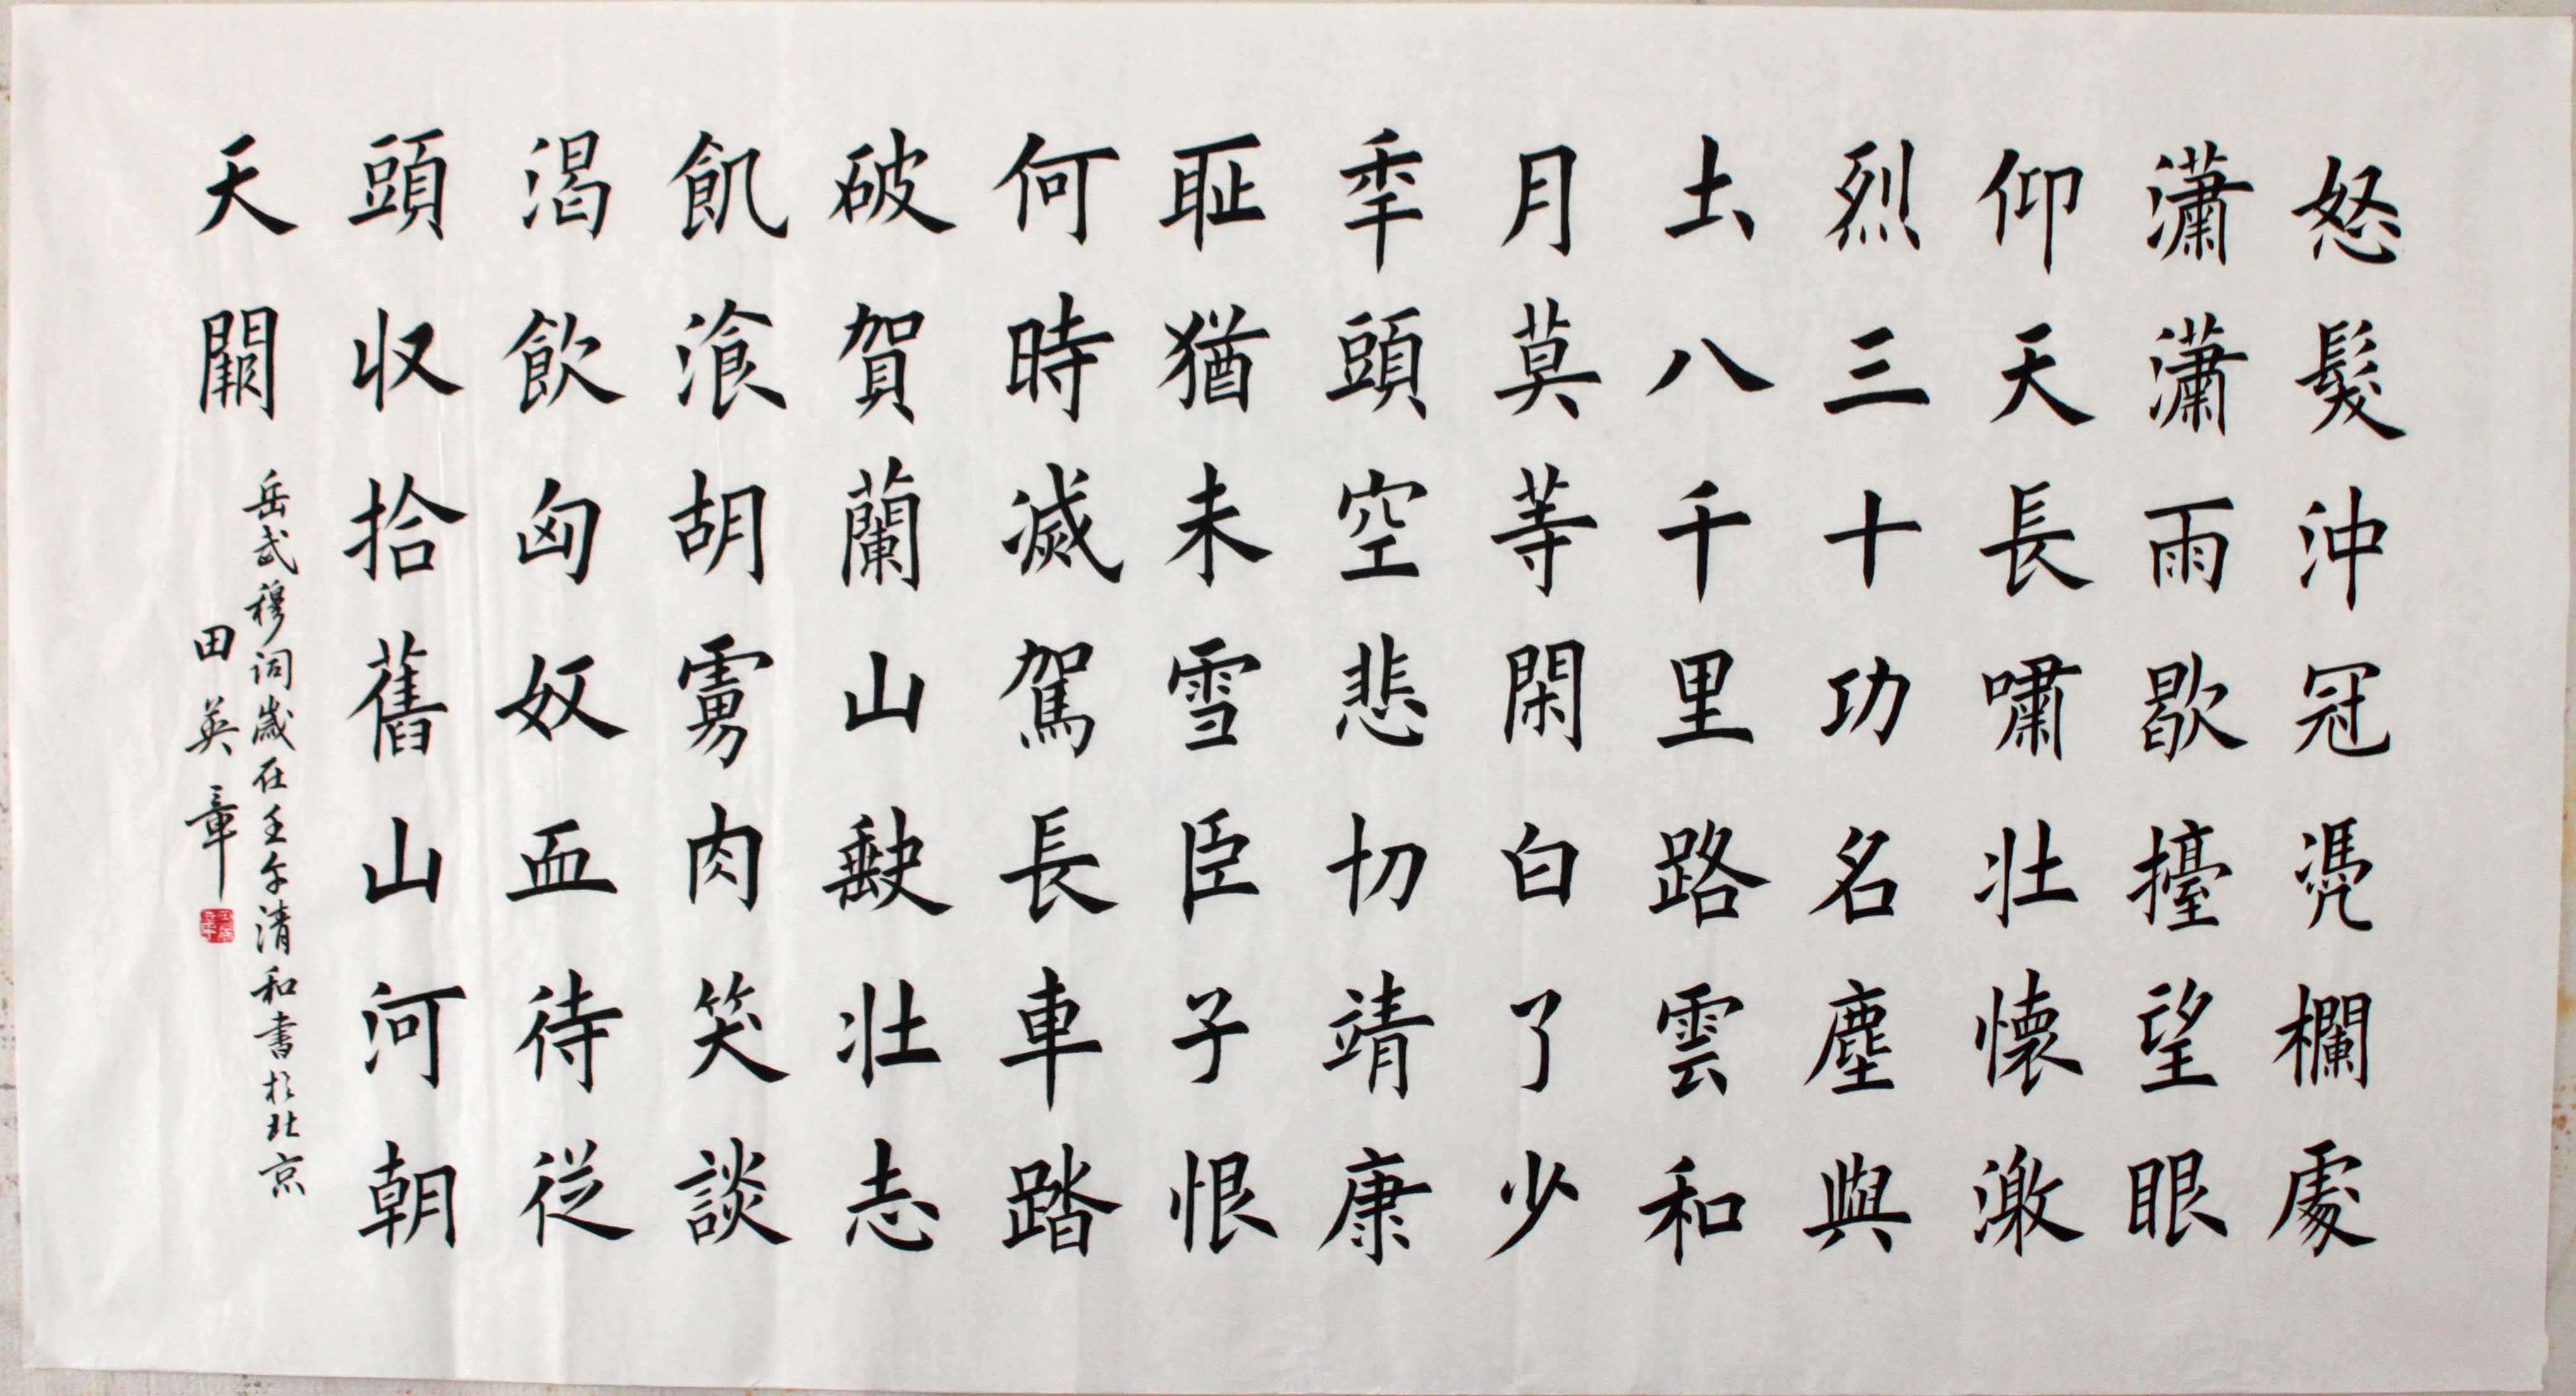 怒髮沖冠凴欄處
瀟瀟雨歇擡望眼
仰天長嘯壯懷激
烈三十功名塵與
土八千里路雲和
月莫等閑白了少
年頭空悲切靖康
耻猶未雪臣子恨
何時滅駕長車踏
破賀蘭山缺壯志
飢飡胡虜肉笑談
渴飲匈奴血待從
頭收拾舊山河朝
天闕
岳武穆词歲在壬午清和書於北京
田英章